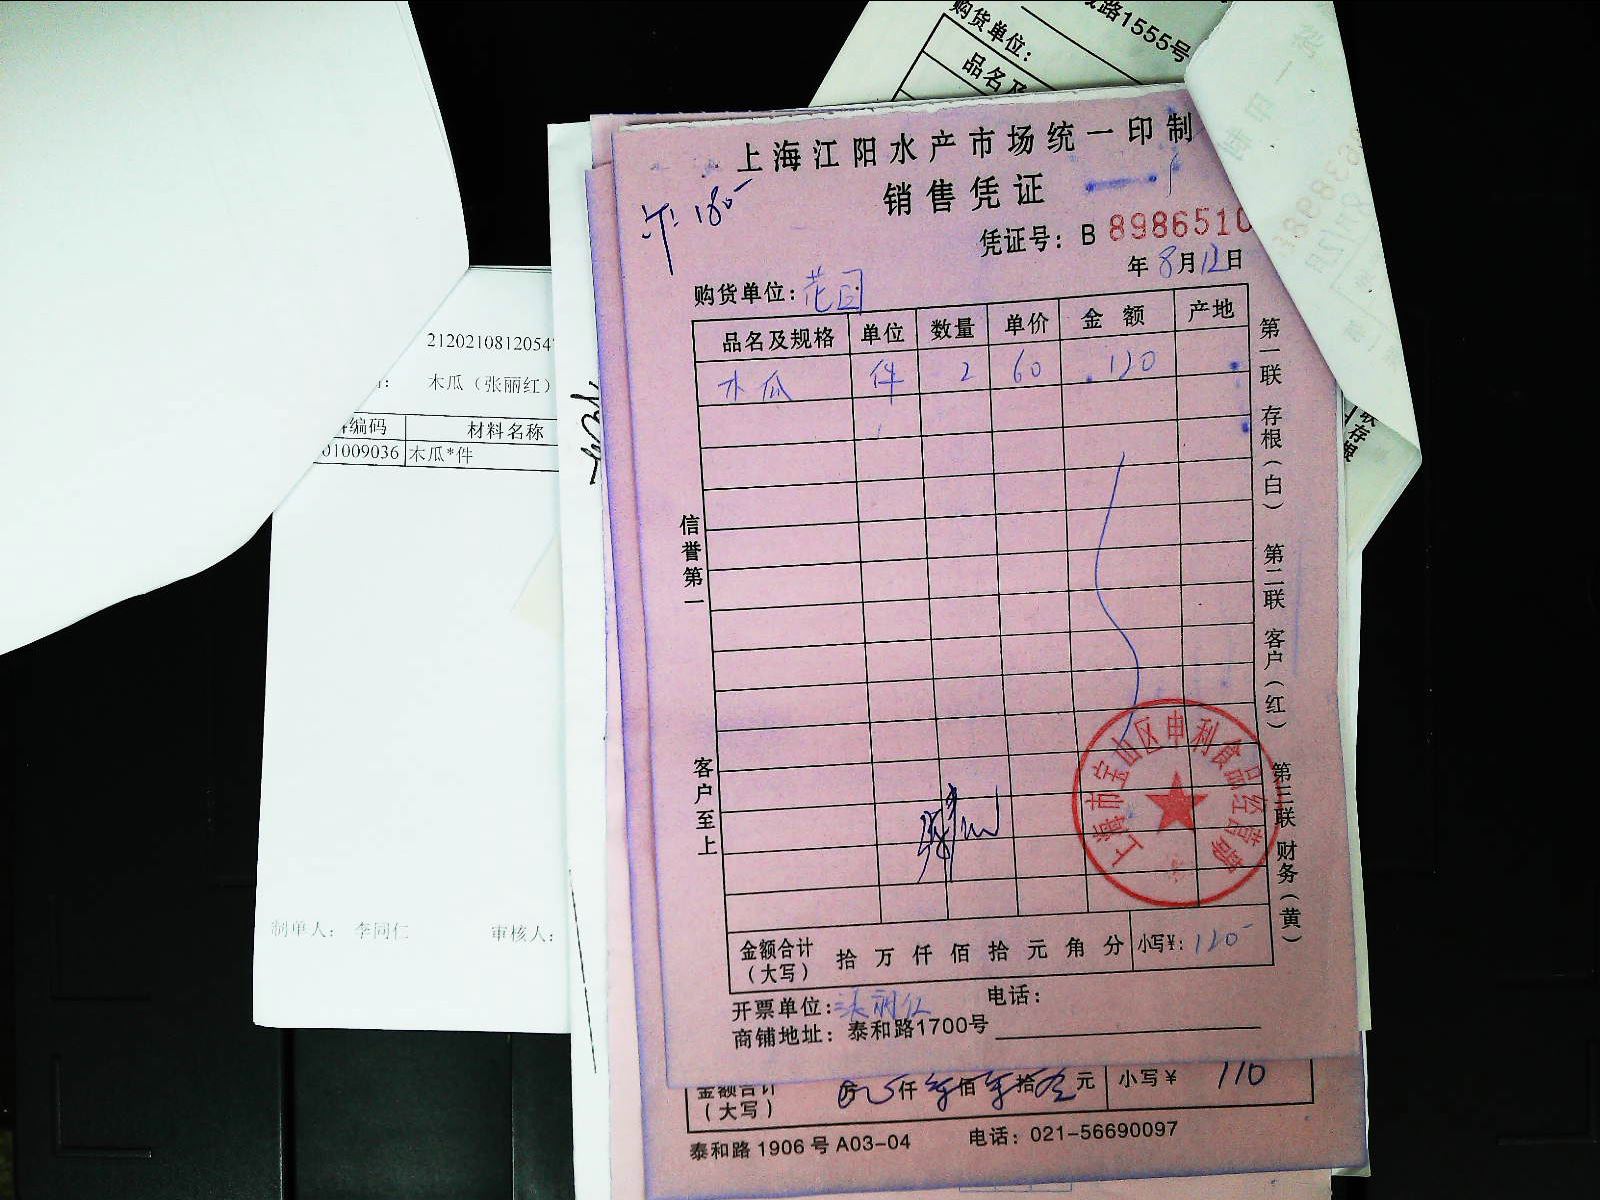 路1555号
购货单位：
品名及
上海江阳水产市场统一印制
销售凭证
凭证号：B 8986510
年8月12日
购货单位：花园
品名及规格 单位 数量 单价 金额 产地
木瓜 件 2 60 120
信誉第一
客户至上
第一联 存根（白） 第二联 客户（红） 第三联 财务（黄）
上海市宝山区申利食品经营部
金额合计（大写） 拾 万 仟 佰 拾 元 角 分 小写¥：120
开票单位：张丽红 电话：
商铺地址：泰和路1700号
金额合计（大写） 仟 佰 拾 元 小写¥ 110
泰和路1906号A03-04 电话：021-56690097
2120210812054
木瓜（张丽红）
编码 材料名称
01009036 木瓜*件
制单人：李同仁 审核人：
联存根